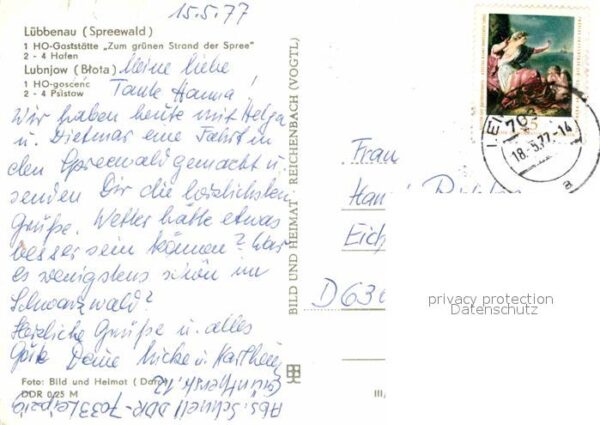 15.5.77
Lübbenau (Spreewald)
1 HO-Gaststätte „Zum grünen Strand der Spree"
2 - 4 Hafen
Lubnjow (Błota)
1 HO-gosćenc
2 - 4 Psistow
Meine liebe
Tante Hanna!
Wir haben heute mit Helga
u. Dietmar eine Fahrt in
den Spreewald gemacht u.
senden Dir die herzlichsten
Grüße. Wetter hätte etwas
besser sein können? War
es wenigstens schön im
Schwarzwald?
Herzliche Grüße u. alles
Gute Deine Micke u. Karlheinz
Foto: Bild und Heimat (Darr)
DDR 0/25 M
Abs: Schnell DDR-7033 Leipzig
12
BILD UND HEIMAT · REICHENBACH (VOGTL)
III/
701
18.-5.77.-14
a
Frau
Han
Eich
D636
privacy protection
Datenschutz